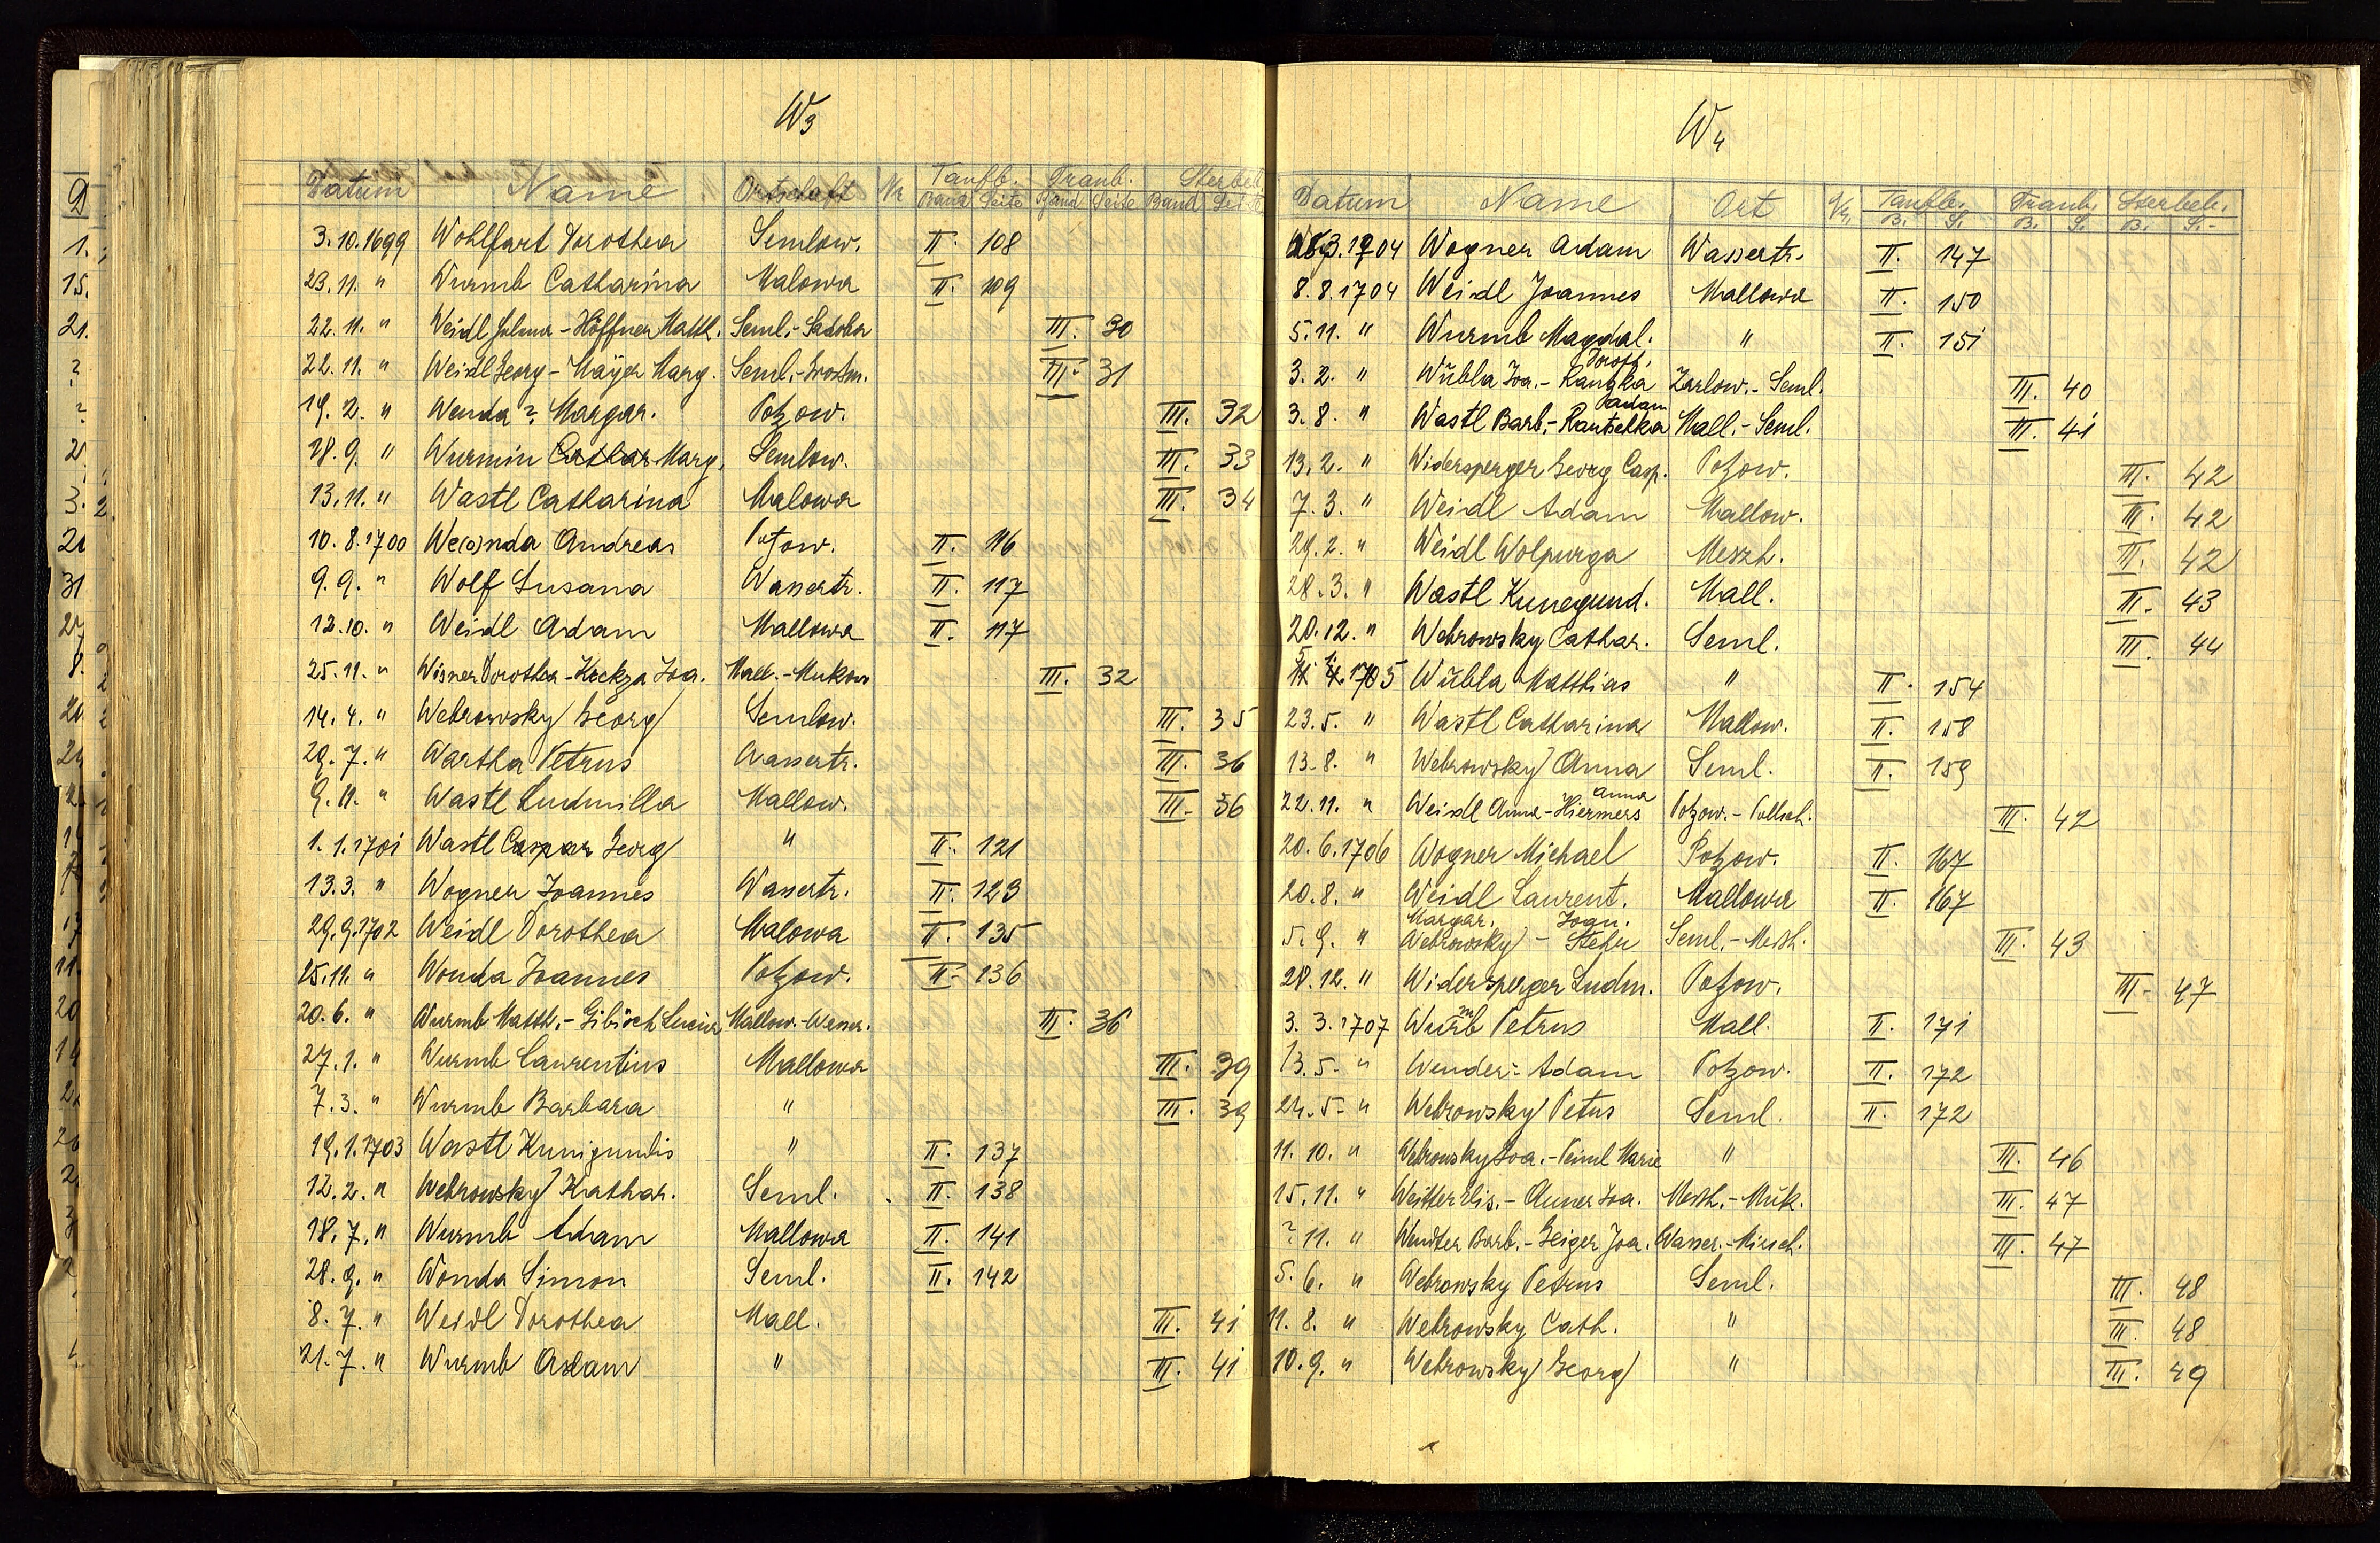 W3
Datum Name Ortschaft Nr Taufb. Traub. Sterbeb.
Band Seite Band Seite Band Seite
3.10.1699 Wohlfart Dorothea Semlow. II. 108
23.11. " Wurmb Catharina Malowa II. 109
22.11. " Weidl - Höffner Matth. Seml.- III. 30
22.11. " Weidl Georg - Mayer Marg. Seml.- III. 31
19. 2. " Wenda ? Margar. Potzow. III. 32
18. 9. " Wurmin Cathar Marg. Semlow. III. 33
13.11. " Wastl Catharina Malowa III. 34
10. 8. 1700 We(o)nda Andreas Potzow. II. 116
9. 9. " Wolf Susana Wassertr. II. 117
12.10. " Weidl Adam Mallowa II. 117
25.11. " Wisner Dorothea - Kockza Joa. Mall.-Mukow III. 32
14. 4. " Webrowsky Georg Semlow. III. 35
29. 7. " Wartha Petrus Wassertr. III. 36
9. 11. " Wastl Ludmilla Mallow. III. 36
1. 1. 1701 Wastl Caspar Georg " II. 121
13.3. " Wogner Joannes Wassertr. II. 123
29.9.1702 Weidl Dorothea Malowa II. 135
25.11. " Wonda Joannes Potzow. II. 136
20. 6. " Wurmb Matth.- Gibisch Lucia Mallow.-Wasser. III. 36
27. 1. " Wurmb Laurentius Mallowa III. 39
7. 3. " Wurmb Barbara " III. 39
19.1.1703 Wastl Kunigundis " II. 137
12. 2. " Webrowsky Kathar. Seml. II. 138
18. 7. " Wurmb Adam Mallowa II. 141
28. 9. " Wonda Simon Seml. II. 142
8. 7. " Weidl Dorothea Mall. III. 41
21. 7. " Wurmb Adam " III. 41
W4
Datum Name Ort Nr. Taufb. Traub. Sterbeb.
B. S. B. S. B. S.
3.1704 Wogner Adam Wassertr. II. 147
8. 8. 1704 Weidl Joannes Mallowa II. 150
5.11. " Wurmb Magdal. " II. 151
Doroth.
3. 2. " Wübla Joa.- Rauzka Zarlow.- Seml. III. 40
Adam
3. 8. " Wastl Barb.- Rautschka Mall.- Seml. III. 41
13. 2. " Widersperger Georg Casp. Potzow. III. 42
7. 3. " Weidl Adam Mallow. III. 42
29. 2. " Weidl Wolpurga Meszh. III. 42
28. 3. " Wastl Kunegund. Mall. III. 43
20.12. " Webrowsky Cathar. Seml. III. 44
5. 1.
1705 Wübla Matthias " II. 154
23.5. " Wastl Catharina Mallow. II. 158
13.8. " Webrowsky Anna Seml. II. 159
Anna
22.11. " Weidl Anna - Hiermers Potzow.- III. 42
20. 6. 1706 Wogner Michael Potzow. II. 167
20. 8. " Weidl Laurent. Mallowa II. 167
Margar. Joan.
5. 9. " Webrowsky - Stehu Seml.- Meszh. III. 43
28. 12. " Widersperger Ludm. Potzow. III. 47
m
3. 3. 1707 Wurb Petrus Mall. II. 171
13. 5. " Wender: Adam Potzow. II. 172
24. 5. " Webrowsky Petus Seml. II. 172
11. 10. " Webrowsky Joa.- Peiml Marie " III. 46
15. 11. " Weitter Elis.- Auner Joa. Meszh.- Muk. III. 47
? 11. " Wendter Barb.- Geiger Joa. Wasser.- Miesch. III. 47
5. 6. " Webrowsky Petrus Seml. III. 48
11. 8. " Webrowsky Cath. " III. 48
10. 9. " Webrowsky Georg " III. 49